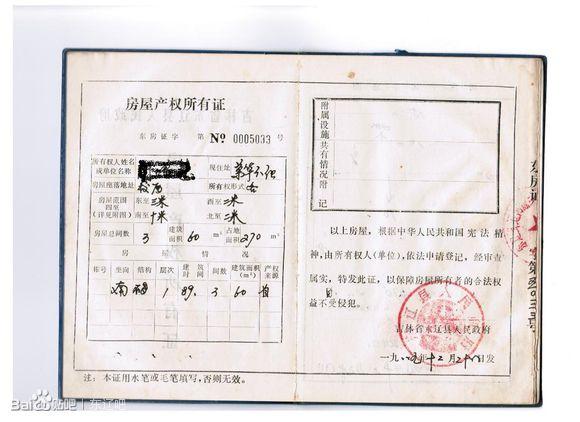 房屋产权所有证
东房证字 第 № 0005033 号
所有权人姓名或单位名称
现住址
房屋座落地址
所有权形式
房屋范围四至(详见附图)
东至 三米 西至 三米
南至 十米 北至 三米
房屋总间数 3 建筑面积 60 m² 占地面积 270 m²
房屋情况
栋号 坐向 结构 层次 建筑时间 间数 建筑面积(m²) 产权来源
南 1 89. 3 60 自
注:本证用水笔或毛笔填写,否则无效。
附属设施共有情况附记
以上房屋,根据中华人民共和国宪法精
神,由所有权人(单位),依法申请登记,经审查
属实,特发此证,以保障房屋所有者的合法权
益不受侵犯。
吉林省东辽县人民政府
一九 年十二月 日发
Baidu贴吧 | 东辽吧